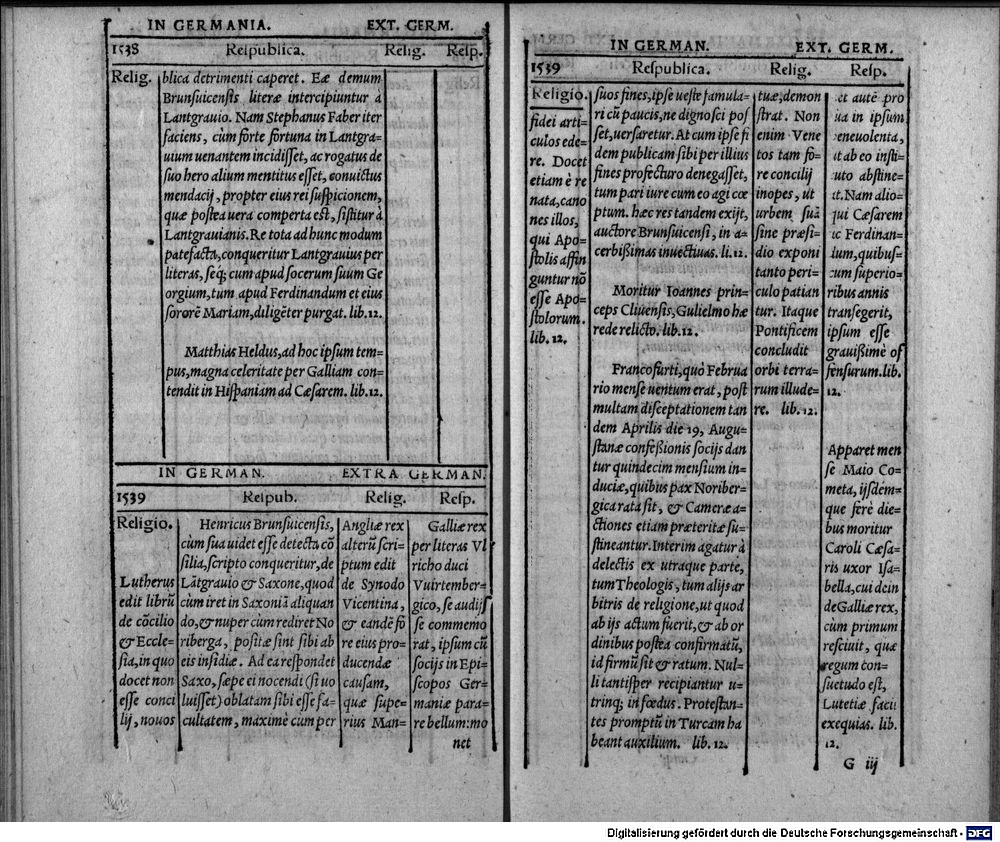 IN GERMANIA. EXT. GERM.
1538 Respublica. Relig. Resp.
Relig.
blica detrimenti caperet. Eæ demum
Brunsuicensis literæ intercipiuntur à
Lantgrauio. Nam Stephanus Faber iter
faciens, cùm forte fortuna in Lantgra-
uium uenantem incidisset, ac rogatus de
suo hero alium mentitus esset, conuictus
mendacij, propter eius rei suspicionem,
quæ postea uera comperta est, sistitur à
Lantgrauianis. Re tota ad hunc modum
patefacta, conqueritur Lantgrauius per
literas, seq; cum apud socerum suum Ge
orgium, tum apud Ferdinandum et eius
sororē Mariam, diligēter purgat. lib. 12.
Matthias Heldus, ad hoc ipsum tem-
pus, magna celeritate per Galliam con-
tendit in Hispaniam ad Cæsarem. lib. 12.
IN GERMAN. EXTRA GERMAN.
1539 Respub. Relig. Resp.
Religio.
Lutherus
edit librū
de cōcilio
& Eccle-
sia, in quo
docet non
esse conci
lij, nouos
Henricus Brunsuicensis,
cùm sua uidet esse detecta cō
silia, scripto conqueritur, de
Lātgrauio & Saxone, quod
cùm iret in Saxoniā aliquan
do, & nuper cùm rediret No
riberga, positæ sint sibi ab
eis insidiæ. Ad ea respondet
Saxo, sæpe ei nocendi (si uo
luisset) oblatam sibi esse fa-
cultatem, maximè cum per
Angliæ rex
alterū scri-
ptum edit
de Synodo
Vicentina,
& eandē fo
re eius pro-
ducendæ
causam,
quæ supe-
rius Man-
Galliæ rex
per literas Vl
richo duci
Vuirtember-
gico, se audijs
se commemo
rat, ipsum cū
socijs in Epi-
scopos Ger-
maniæ para-
re bellum: mo
net
IN GERMAN. EXT. GERM.
1539 Respublica. Relig. Resp.
Religio.
fidei arti-
culos ede-
re. Docet
etiam è re
nata, cano
nes illos,
qui Apo-
stolis affin
guntur nō
esse Apo-
stolorum.
lib. 12.
suos fines, ipse ueste famula-
ri cū paucis, ne dignosci pos
set, uersaretur. At cum ipse fi
dem publicam sibi per illius
fines profecturo denegasset,
tum pari iure cum eo agi cœ
ptum. hæc res tandem exijt,
auctore Brunsuicensi, in a-
cerbißimas inuectiuas. li. 12.
Moritur Ioannes prin-
ceps Cliuensis, Gulielmo hæ
rede relicto. lib. 12.
Francofurti, quò Februa
rio mense uentum erat, post
multam disceptationem tan
dem Aprilis die 19, Augu-
stanæ confeßionis socijs dan
tur quindecim mensium in-
duciæ, quibus pax Noriber-
gica rata sit, & Cameræ a-
ctiones etiam præteritæ su-
stineantur. Interim agatur à
delectis ex utraque parte,
tum Theologis, tum alijs ar
bitris de religione, ut quod
ab ijs actum fuerit, & ab or
dinibus postea confirmatū,
id firmū sit & ratum. Nul-
li tantisper recipiantur u-
trinq; in fœdus. Protestan-
tes promptū in Turcam ha
beant auxilium. lib. 12.
tuæ, demon
strat. Non
enim Vene
tos tam fo-
re concilij
inopes, ut
urbem suā
sine præsi-
dio exponi
tanto peri-
culo patian
tur. Itaque
Pontificem
concludit
orbi terra-
rum illude-
re. lib. 12.
et autē pro
ua in ipsum
eneuolenta,
it ab eo insti-
uto abstine-
it. Nam alio-
qui Cæsarem
ac Ferdinan-
dum, quibus-
cum superio-
ribus annis
transegerit,
ipsum esse
grauißimè of
fensurum. lib.
12.
Apparet men
se Maio Co-
meta, ijsdem-
que ferè die-
bus moritur
Caroli Cæsa-
ris uxor Isa-
bella, cui dein
de Galliæ rex,
cùm primum
resciuit, quæ
regum con-
suetudo est,
Lutetiæ facit
exequias. lib.
12.
G iij
Digitalisierung gefördert durch die Deutsche Forschungsgemeinschaft - DFG